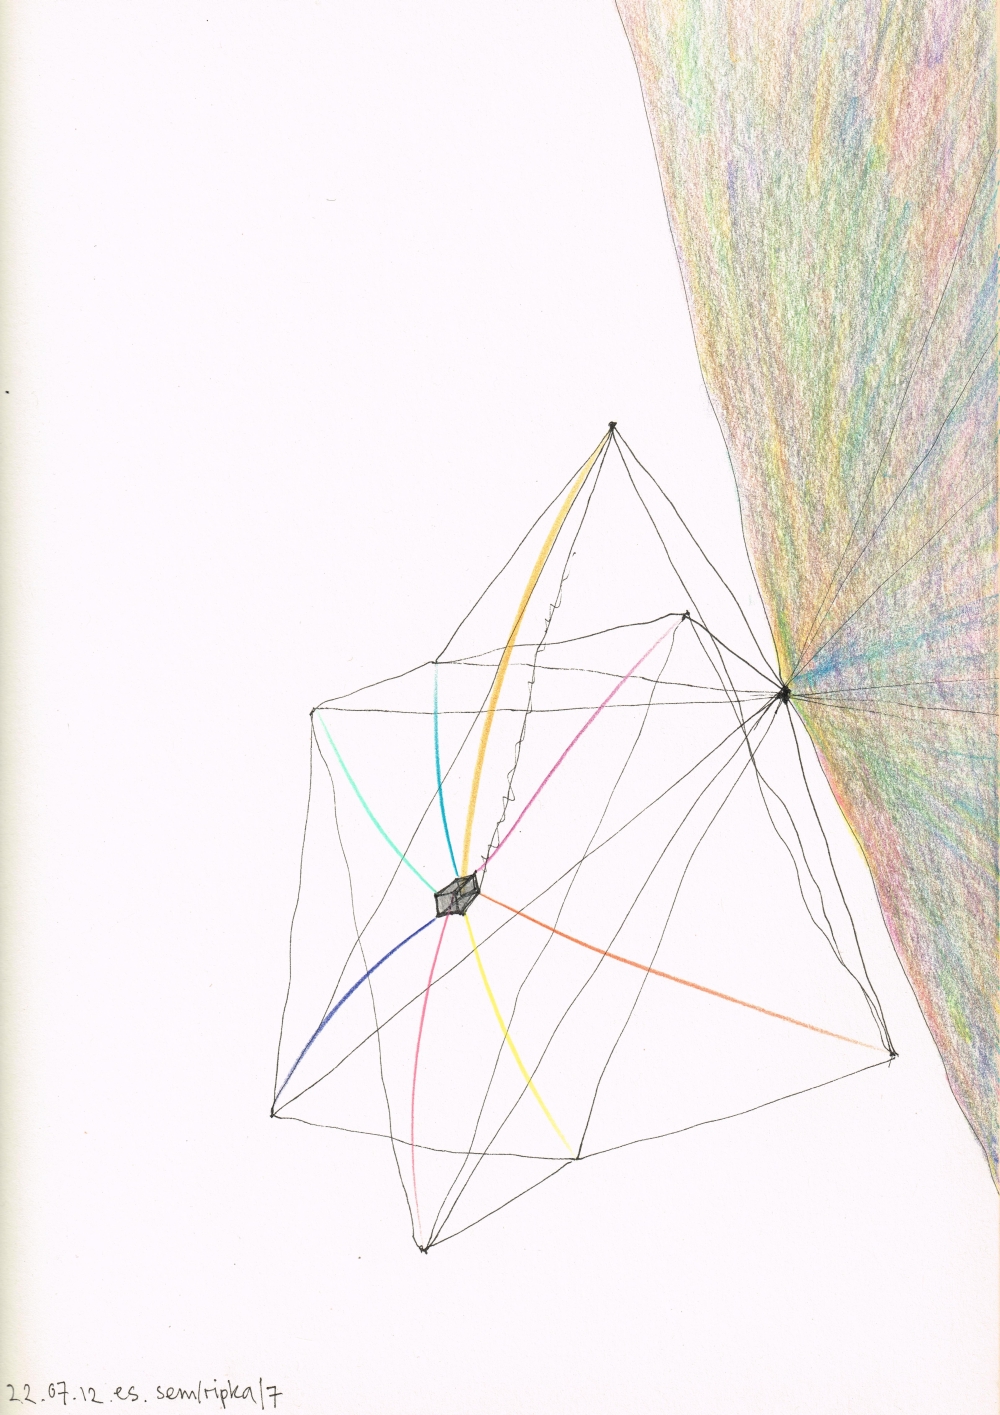 22.07.12.es. sem/ripka/7